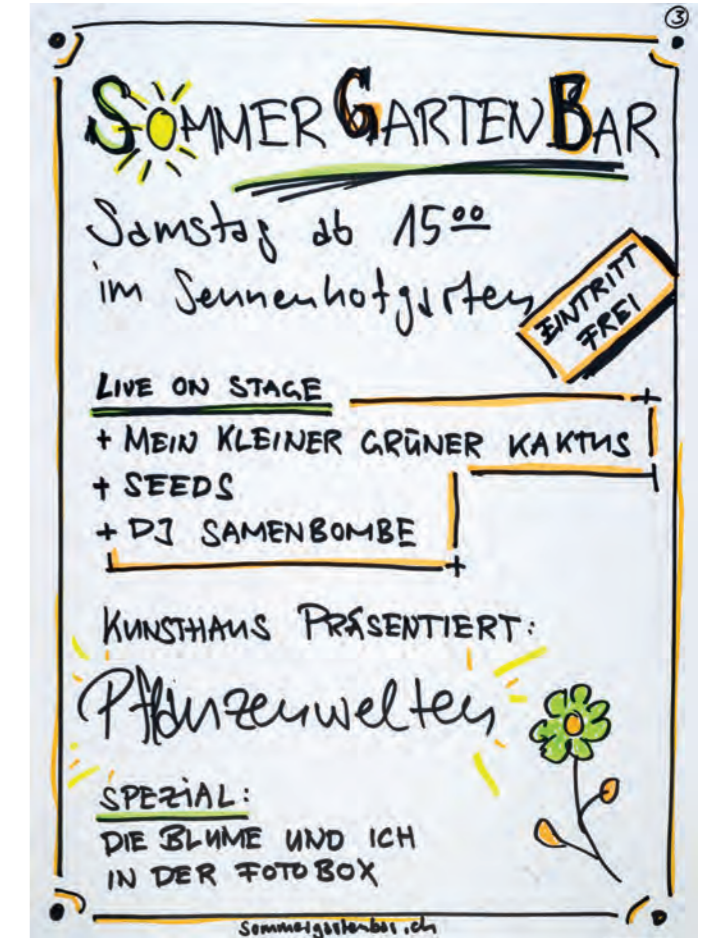 ③
SOMMER GARTEN BAR
Samstag ab 15⁰⁰
im Sennenhofgarten
EINTRITT
FREI
LIVE ON STAGE
+ MEIN KLEINER GRÜNER KAKTUS
+ SEEDS
+ DJ SAMENBOMBE
KUNSTHAUS PRÄSENTIERT:
Pflanzenwelten
SPEZIAL:
DIE BLUME UND ICH
IN DER FOTOBOX
sommergartenbar.ch